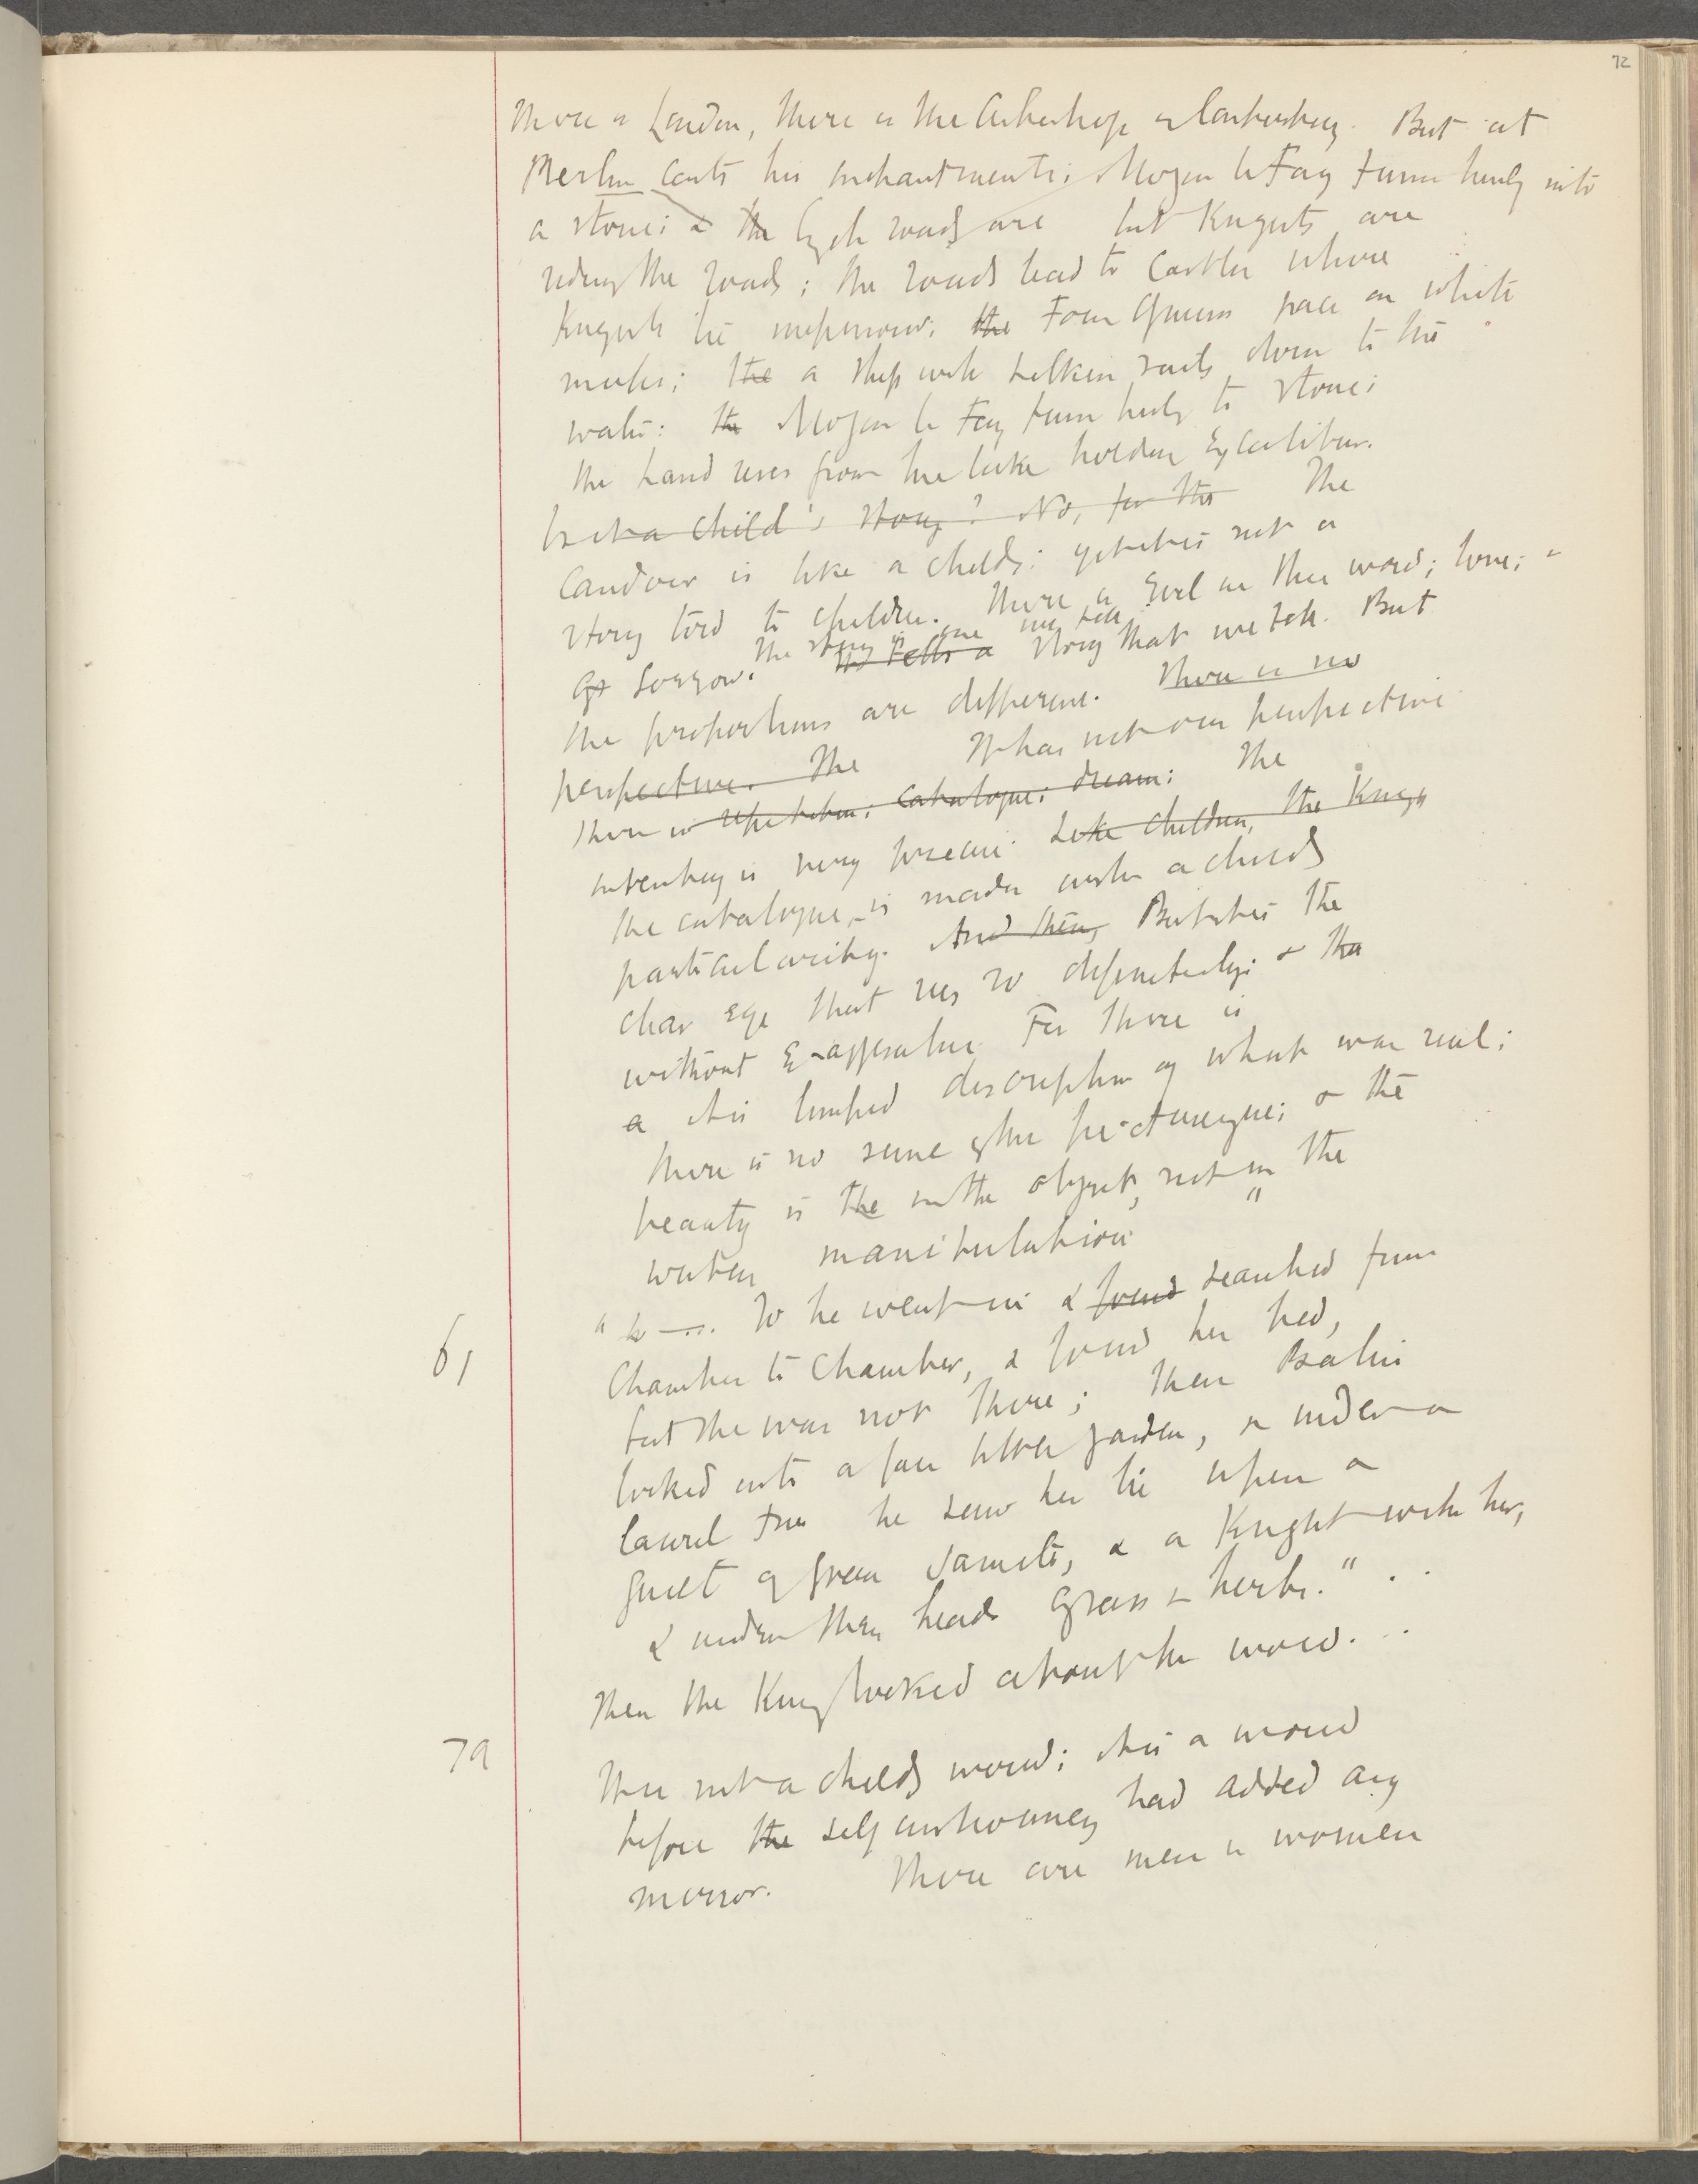 72
There is London, there is the Archbishop of Canterbury. But at
Merlin casts his enchantments; Morgan le Fay turns herself into
a stone; & the roads are but Knights are
riding the roads; the roads lead to Castles where
Knights lie imprisoned; the Four Queens pace on white
mules; the a ship with silken sails down to the
water: the Morgan le Fay turns herself to stone;
the hand rises from the lake holding Excalibur.
Is it a child's story? No, for the The
Candour is like a childs: yet it is not a
story told to children. There is Evil in this world; love; &
sorrow. The story is one we tell
It tells a story that we tell. But
the proportions are different. There is no
perspective. The It has not our perspective
There is repetition; catalogue; dream; The
inventory is very precise. Like children, the Kings
the catalogue, is made with a childs
particularity. And then, But it is the
clear eye that sees so definitely; & the
without exaggeration For there is
a it is limpid description of what was real;
there is no sense of the picturesque; & the
beauty is the in the object, not in the
writers manipulation
"So he went in & found searched from
61
Chamber to Chamber, & found her bed,
but she was not there; then Balin
looked into a fair little garden, & under a
laurel tree he saw her lie upon a
quilt of green samite, & a Knight with her,
& under their heads grass & herbs." . .
Then the King looked about the world. . .
79
This is not a childs world; it is a world
before the self consciousness had added any
mirror. There are men & women